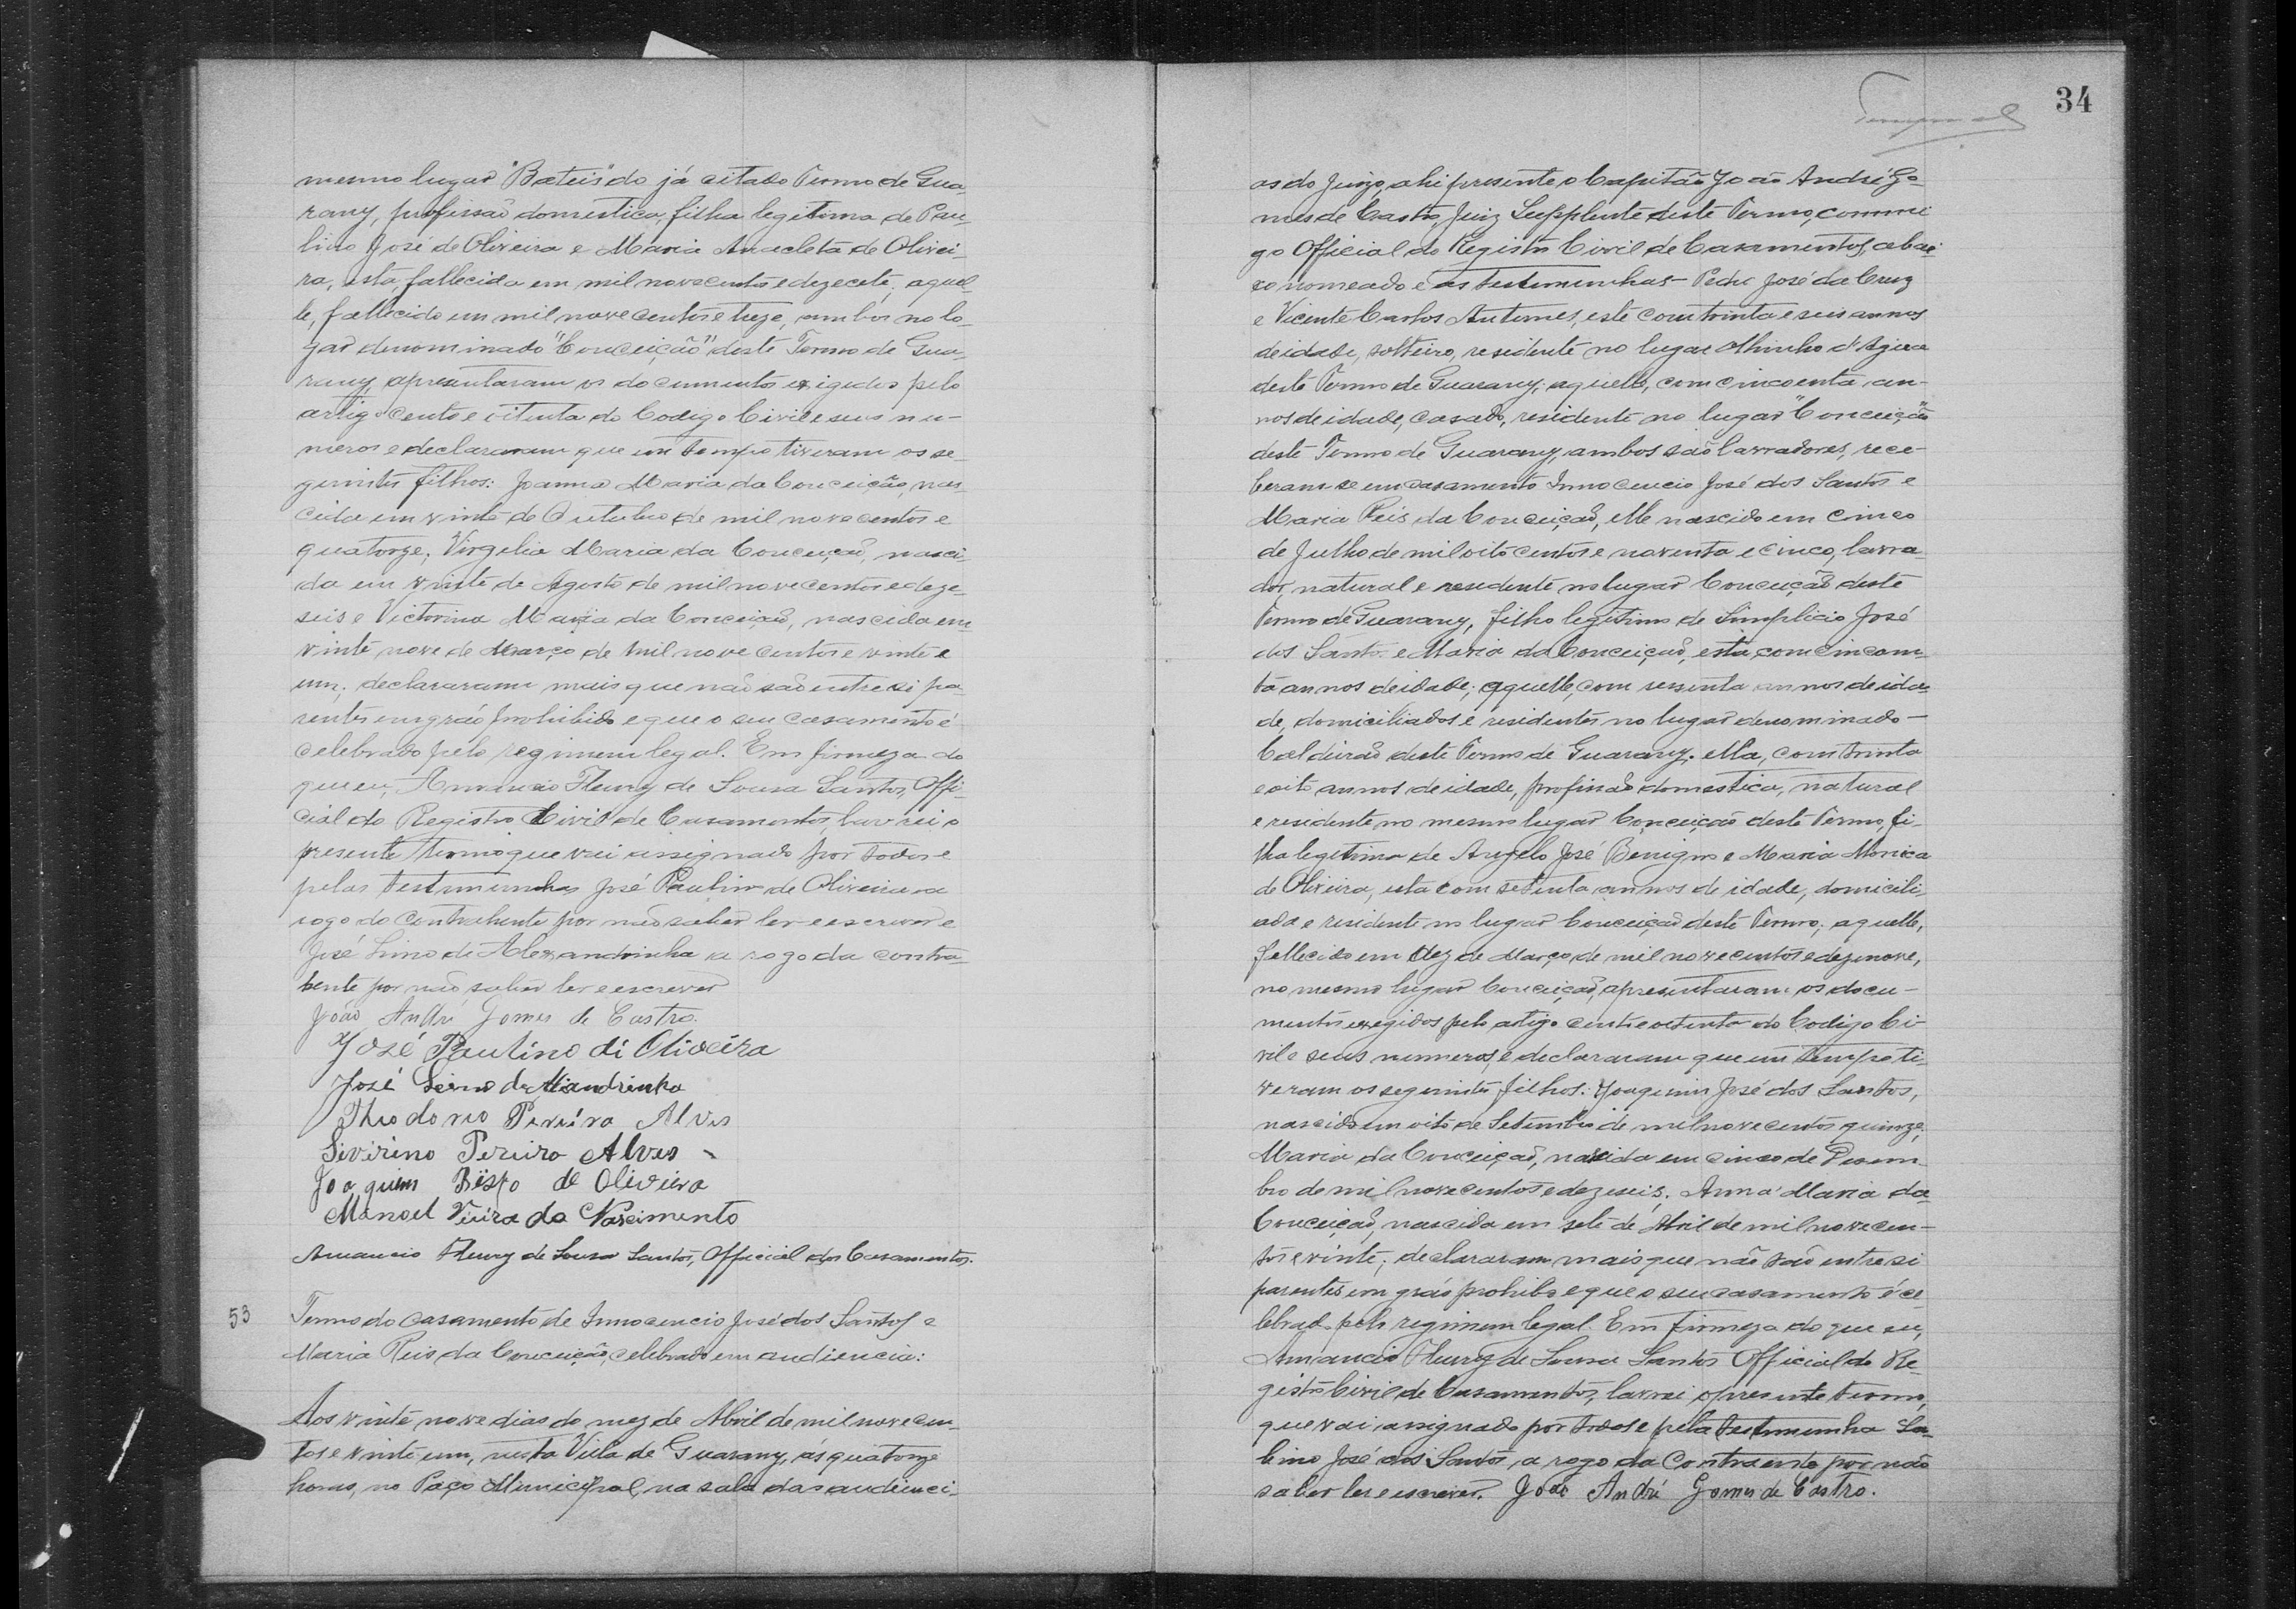 mesmo lugar "Bateis" do já citado Termo de Gua-
rany, profissão domestica, filha legitima de Pau-
lino José de Oliveira e Maria Anacleta de Olivei-
ra, esta, fallecida em mil novecentos e dezecete, aquel-
le, fallecido em mil novecentos e treze, ambos no lo-
gar denominado "Conceição" deste Termo de Gua-
rany, apresentaram os documentos exigidos pelo
artigo cento e oitenta do Codigo Civil e seus nu-
meros e declararam que em tempo tiveram os se-
guintes filhos: Joanna Maria da Conceição, nas-
cida em vinte de Outubro de mil novecentos e
quatorze; Virgelia Maria da Conceição, nasci-
da em vinte de Agosto de mil novecentos e deze-
seis e Victorina Maria da Conceição, nascida em
vinte nove de Março de mil novecentos e vinte e
um; declararam mais que não são entre si pa-
rentes em gráo prohibido e que o seu casamento é
celebrado pelo regimem legal. Em firmeza do
que eu, Amancio Fleury de Sousa Santos, Offi-
cial do Registro Civil de Casamentos, lavrei o
presente termo que vai assignado por todos e
pelas testemunhas José Paulino de Oliveira a
rogo do contrahente por não saber ler e escrever e
José Limo de Alexandrinha a rogo da contra-
hente por não saber ler e escrever
João André Gomes de Castro.
José Paulino di Oliveira
José Leino de Aliandrinha
Theodorio Pereira Alves
Siverino Pereira Alves
Joaquim Bispo de Oliveira
Manoel Vieira do Nascimento
Amancio Fleury de Sousa Santos, Official dos Casamentos.
53
Termo do casamento de Innocencio José dos Santos e
Maria Reis da Conceição, celebrado em audiencia:
Aos vinte nove dias do mez de Abril de mil novecen-
tos e vinte um, nesta Villa de Guarany, ás quatorze
horas, no Paço Municipal, na sala das audienci-
34
as do Juizo, ahi presente o Capitão João André Go-
mes de Castro, Juiz Supplente deste Termo, commi
go Official do Registro Civil de Casamentos, abai-
xo nomeado e as testemunhas - Pedro José da Cruz
e Vicente Carlos Antunes, este com trinta e seis annos
de idade, solteiro, residente no lugar Olhinho d'Agua
deste Termo de Guarany; aquelle, com cincoenta an-
nos de idade, casado, residente no lugar "Conceição"
deste Termo de Guarany, ambos são lavradores, rece-
beram-se em casamento Innocencio José dos Santos e
Maria Reis da Conceição, elle nascido em cinco
de Julho de mil oito centos e noventa e cinco, lavra-
dor, natural e residente no lugar Conceição deste
Termo de Guarany, filho legitimo de Simplicio José
dos Santos e Maria da Conceição, esta, com cincoen-
ta annos de idade; aquelle, com sessenta annos de ida-
de, domiciliados e residentes no lugar denominado -
Caldeirão deste Termo de Guarany; ella, com trinta
e oito annos de idade, profissão domestica, natural
e residente no mesmo lugar Conceição deste Termo, fi-
lha legitima de Angelo José Benigno e Maria Monica
de Oliveira, esta com setenta annos de idade, domicili-
ada e residente no lugar Conceição deste Termo; aquelle,
fallecido em dez de Março de mil novecentos e dezenove,
no mesmo lugar Conceição, apresentaram os docu-
mentos exegidos pelo artigo cento e oitenta do Codigo Ci-
vil e seus numeros, e declararam que em tempo ti-
veram os seguintes filhos: Joaquim José dos Santos,
nascido em oito de Setembro de mil novecentos quinze;
Maria da Conceição, nascida em cinco de Dezem-
bro de mil novecentos e dezeseis; Anna Maria da
Conceição, nascida em sete de Abril de mil novecen-
tos e vinte; declararam mais que não são entre si
parentes em gráo prohibo e que o seu casamento é ce-
lebrad pelo regimem legal. Em firmeza do que eu,
Amancio Fleury de Sousa Santos Official do Re-
gistro Civil de Casamentos, lavrei o presente termo,
que vai assignado por todos e pela testemunha Sa-
bino José dos Santos, a rogo da Contraente por não
saber ler e escrever. João André Gomes de Castro.